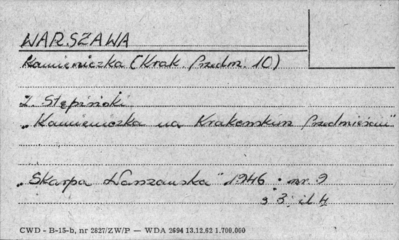 WARSZAWA
Kamieniczka (Krak. Przedm. 10)
Z. Stępiński
„Kamieniczka na Krakowskim Przedmieściu"
„Skarpa Warszawska" 1946 . nr. 9
s 3, il 4
CWD - B-15-b, nr 2827/ZW/P — WDA 2604 13.12.62 1.700.000